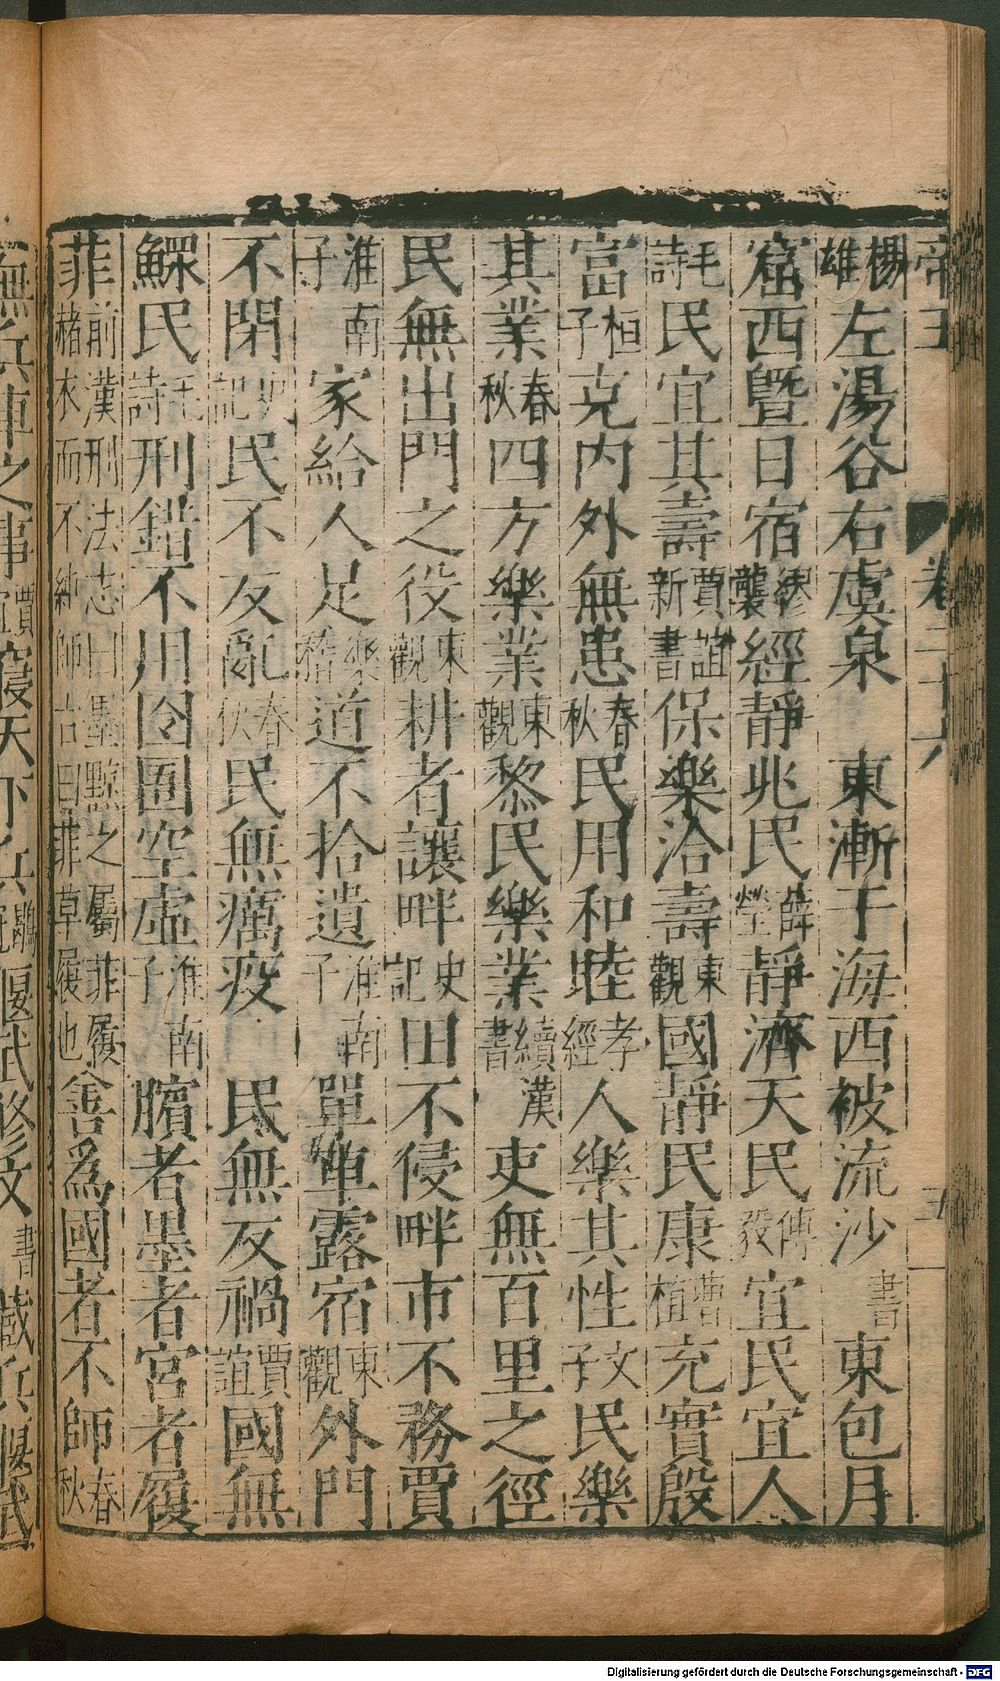 帝王 卷二十六 五
楊雄左湯谷右虞泉 東漸于海西被流沙書東包月
窟西曁日宿繆襲經靜兆民薛瑩靜濟天民傅毅宜民宜人
毛詩民宜其壽賈誼新書保樂洽壽東觀國靜民康曹植充實殷
富桓子克內外無患春秋民用和睦孝經人樂其性文子民樂
其業春秋四方樂業東觀黎民樂業續漢書吏無百里之徑
民無出門之役東觀耕者讓畔史記田不侵畔市不務賈
淮南子家給人足樂稽道不拾遺淮南子單車露宿東觀外門
不閉史記民不反亂春秋民無癘疫 民無反禍賈誼國無
鰥民毛詩刑錯不用囹圄空虛淮南子臏者墨者宮者履
菲前漢刑法志曰墨黥之屬菲履赭衣而不純師古曰菲草履也善爲國者不師春秋
無兵車之事賈誼寢天下之兵鶡冠偃武修文書 戢兵偃武
Digitalisierung gefördert durch die Deutsche Forschungsgemeinschaft - DFG